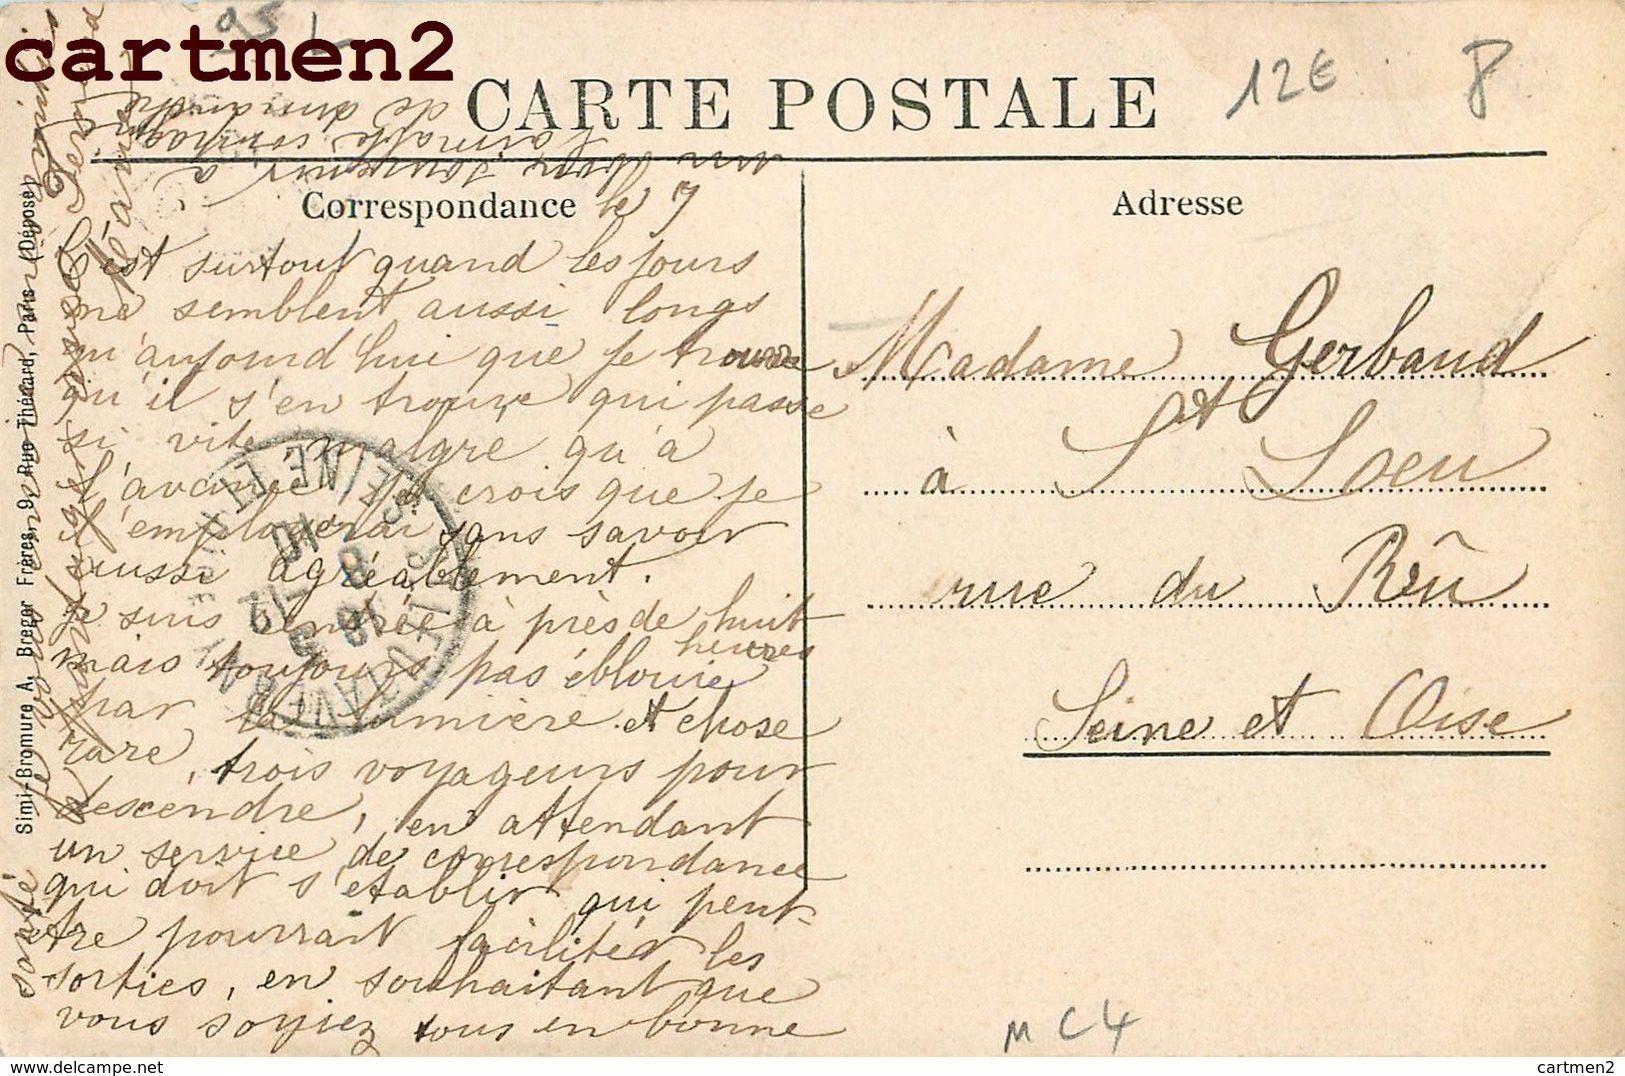 cartmen2
95 L
CARTE POSTALE
12€
Correspondance
le 7
Adresse
C'est surtout quand les jours
me semblent aussi longs
qu'aujourd'hui que je trouve
qu'il s'en trouve qui passe
si vite, malgré qu'à
l'avance je crois que je
l'emploierai sans savoir
aussi agréablement.
Je suis rentrée à près de huit
heures
mais toujours pas éblouie
par la lumière et chose
rare, trois voyageurs pour
descendre, en attendant
un service de correspondance
qui doit s'établir qui peut-
être pourrait faciliter les
sorties, en souhaitant que
vous soyiez tous en bonne
santé
un bon souvenir à
l'aimable
de dimanche
Madame Gerbaud
à St Loeu
rue du Rû
Seine et Oise
Simi-Bromure A. Breger Frères, 9, Rue Thénard, Paris (Déposé)
MC4
cartmen2